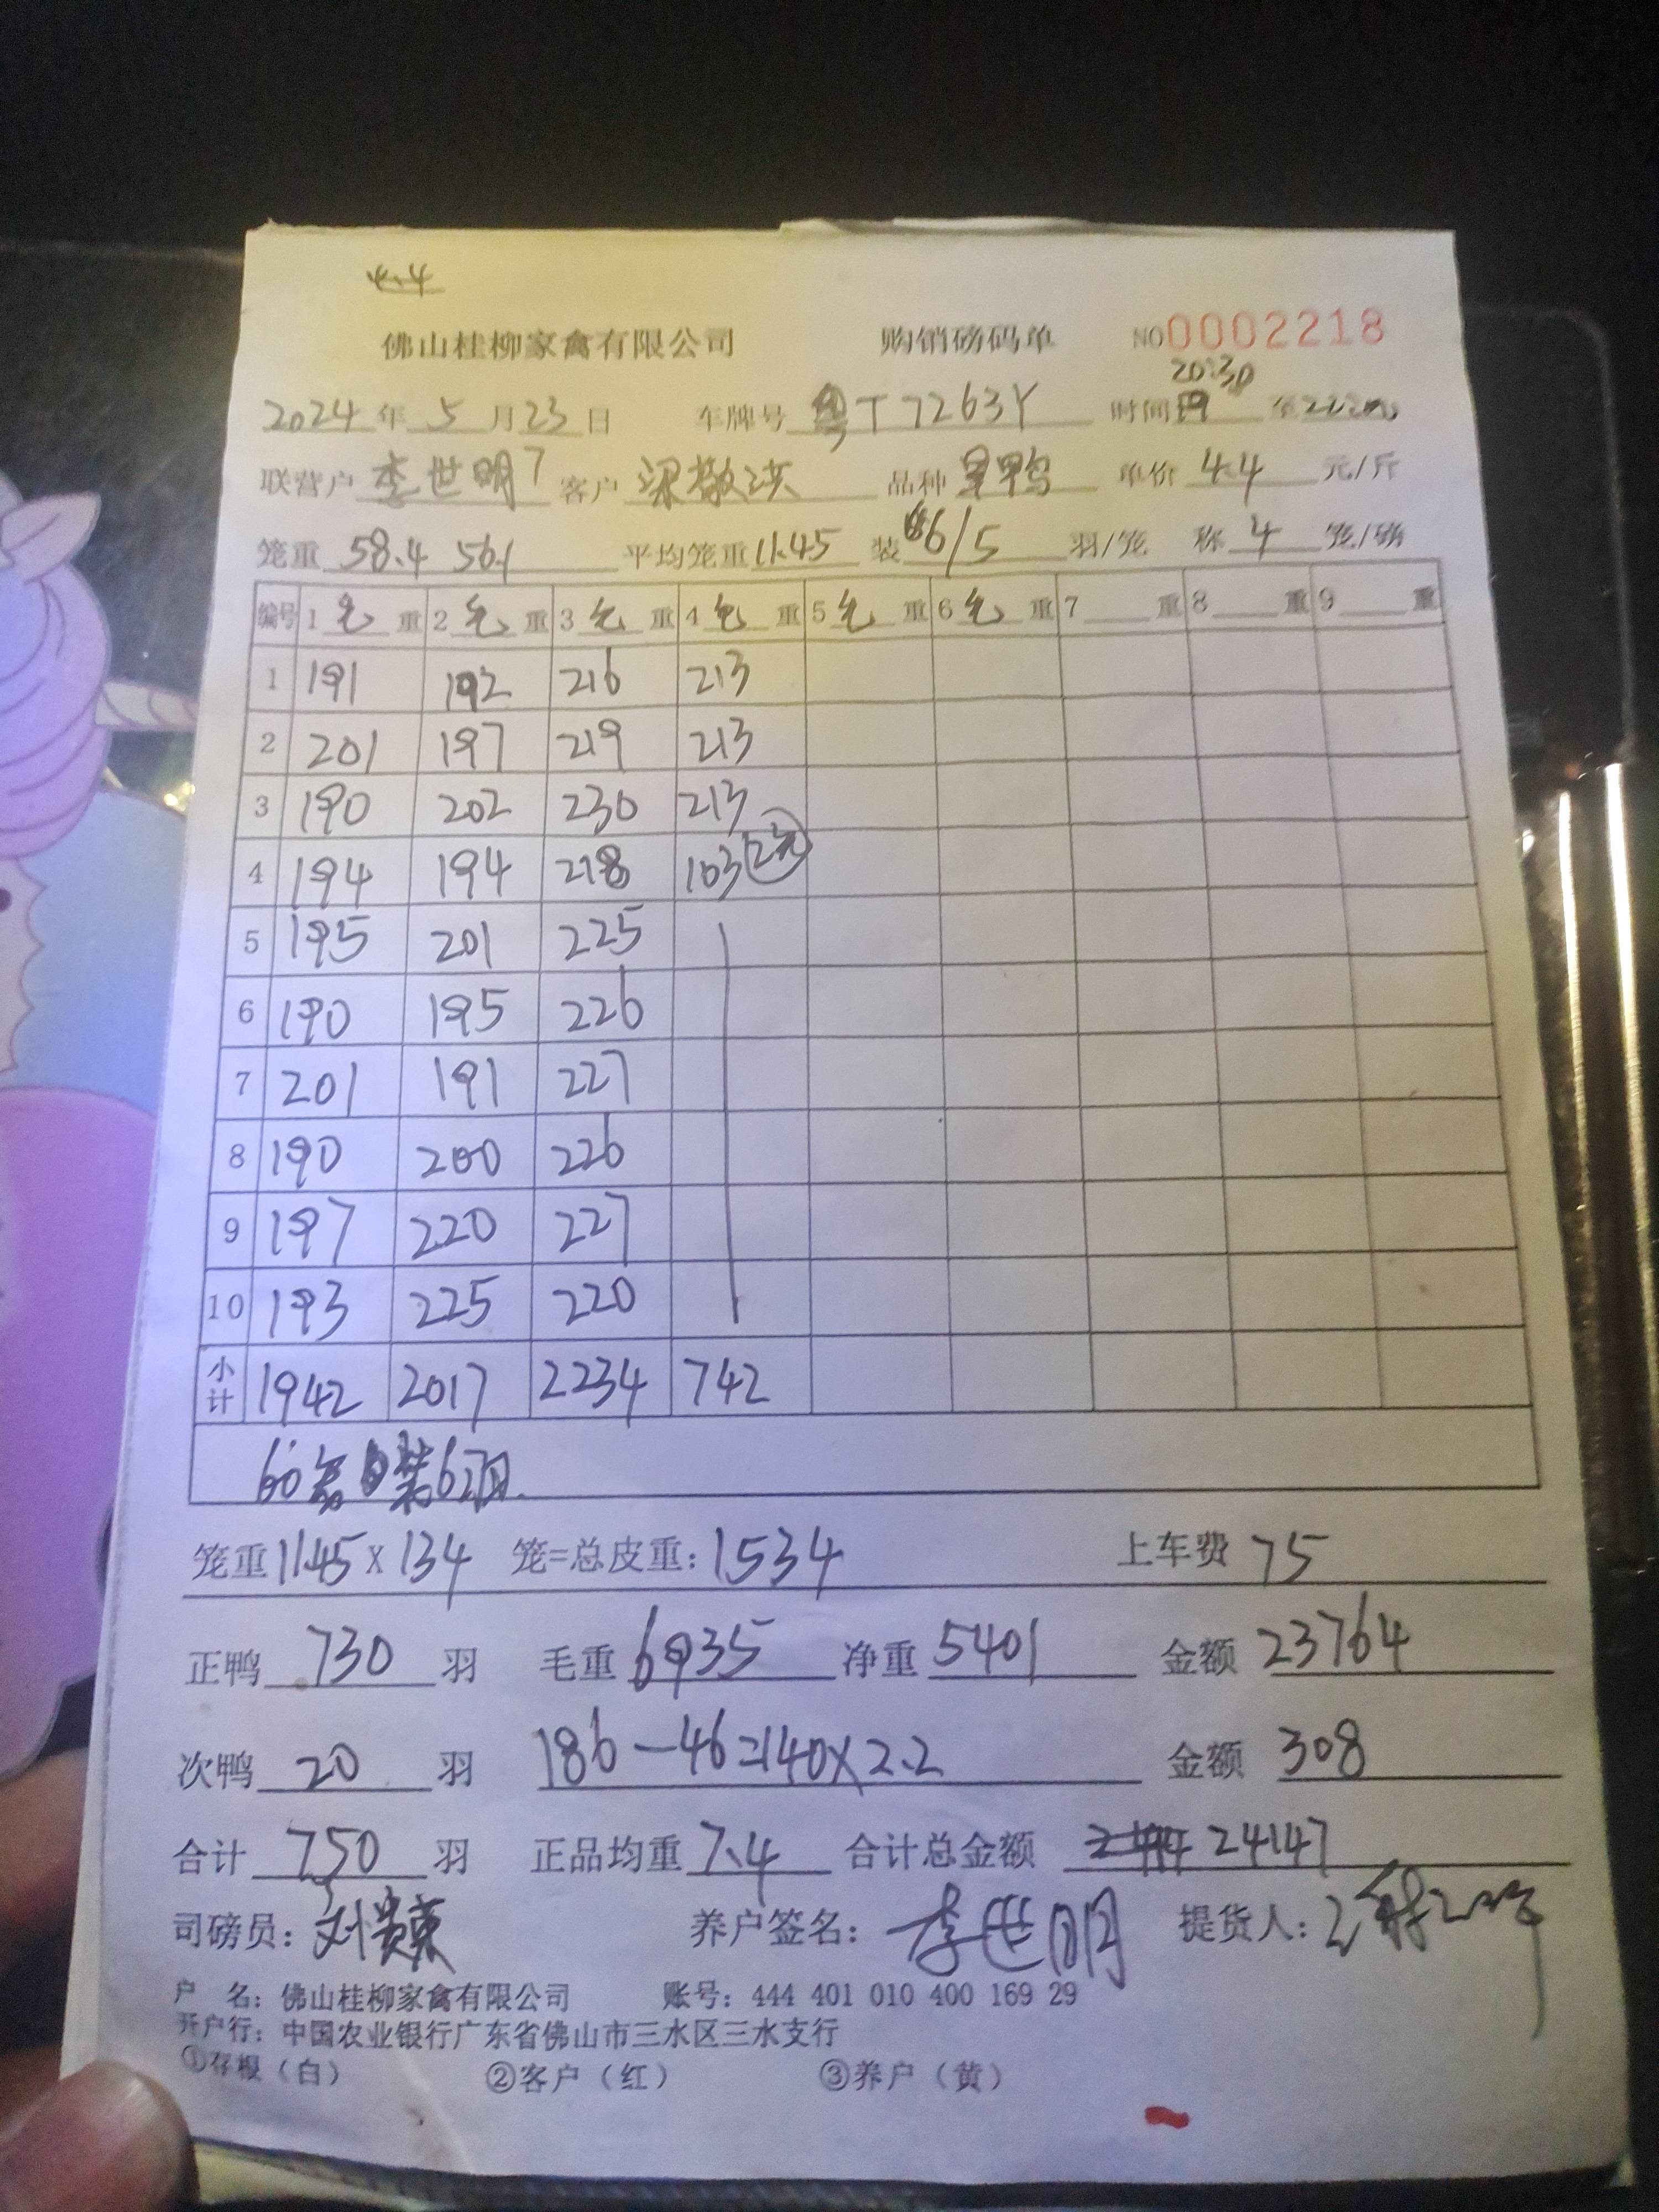 4.4
佛山桂柳家禽有限公司 购销磅码单 NO0002218
20:30
2024年5月23日 车牌号 粤T7263Y 时间 至
联营户 李世明7 客户 梁敬洪 品种 单价 4.4 元/斤
笼重 58.4 56.1 平均笼重 11.45 装 6/5 羽/笼 称 4 笼/磅
编号 1毛重 2毛重 3毛重 4毛重 5毛重 6毛重 7 重 8 重 9 重
1 191 192 216 213
2 201 197 219 213
3 190 202 230 213
4 194 194 218 103
5 195 201 225
6 190 195 226
7 201 191 227
8 190 200 226
9 197 220 227
10 193 225 220
小计 1942 2017 2234 742
60 装6羽.
笼重11.45×134 笼=总皮重:1534 上车费 75
正鸭 730 羽 毛重 6935 净重 5401 金额 23764
次鸭 20 羽 186-46=140×2.2 金额 308
合计 750 羽 正品均重 7.4 合计总金额 24147
司磅员: 养户签名:李世明 提货人:
户 名:佛山桂柳家禽有限公司 账号:444 401 010 400 169 29
开户行:中国农业银行广东省佛山市三水区三水支行
①存根(白) ②客户(红) ③养户(黄)